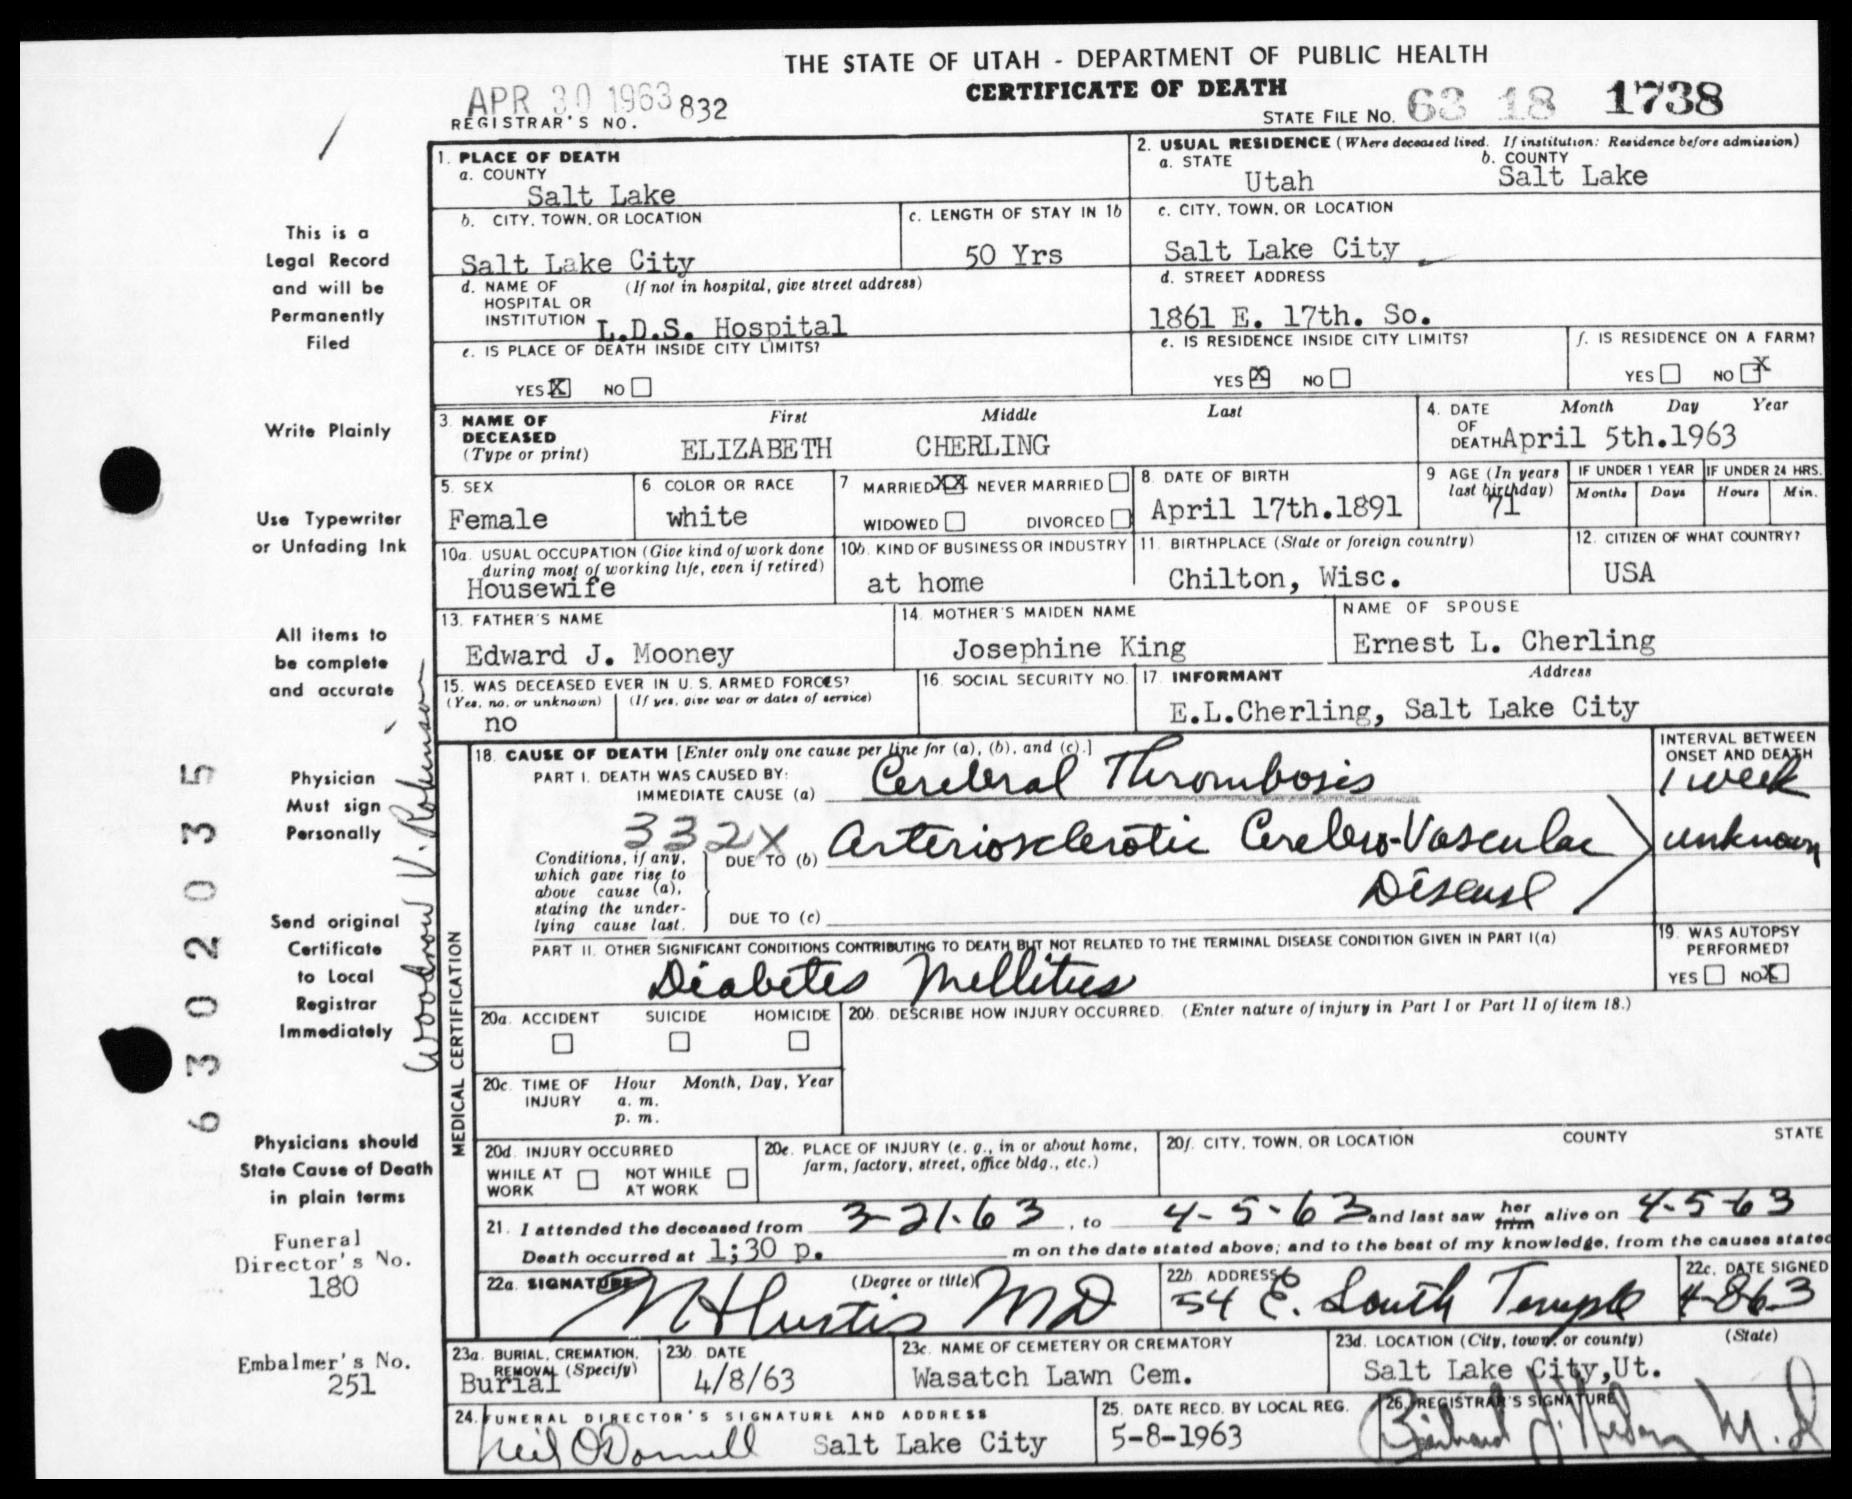 THE STATE OF UTAH - DEPARTMENT OF PUBLIC HEALTH
CERTIFICATE OF DEATH
APR 30 1963 832
REGISTRAR'S NO.
STATE FILE NO. 63 18 1738
1. PLACE OF DEATH
a. COUNTY
Salt Lake
2. USUAL RESIDENCE (Where deceased lived. If institution: Residence before admission)
a. STATE
Utah
b. COUNTY
Salt Lake
b. CITY, TOWN, OR LOCATION
Salt Lake City
c. LENGTH OF STAY IN 1b
50 Yrs
c. CITY, TOWN, OR LOCATION
Salt Lake City
d. NAME OF HOSPITAL OR INSTITUTION (If not in hospital, give street address)
L.D.S. Hospital
d. STREET ADDRESS
1861 E. 17th. So.
e. IS PLACE OF DEATH INSIDE CITY LIMITS?
YES X NO
e. IS RESIDENCE INSIDE CITY LIMITS?
YES X NO
f. IS RESIDENCE ON A FARM?
YES NO X
3. NAME OF DECEASED (Type or print)
First Middle Last
ELIZABETH CHERLING
4. DATE OF DEATH Month Day Year
April 5th.1963
5. SEX
Female
6 COLOR OR RACE
white
7 MARRIED XX NEVER MARRIED
WIDOWED DIVORCED
8. DATE OF BIRTH
April 17th.1891
9 AGE (In years last birthday)
71
IF UNDER 1 YEAR
Months Days
IF UNDER 24 HRS.
Hours Min.
10a. USUAL OCCUPATION (Give kind of work done during most of working life, even if retired)
Housewife
10b. KIND OF BUSINESS OR INDUSTRY
at home
11. BIRTHPLACE (State or foreign country)
Chilton, Wisc.
12. CITIZEN OF WHAT COUNTRY?
USA
13. FATHER'S NAME
Edward J. Mooney
14. MOTHER'S MAIDEN NAME
Josephine King
NAME OF SPOUSE
Ernest L. Cherling
15. WAS DECEASED EVER IN U. S. ARMED FORCES?
(Yes, no, or unknown) (If yes, give war or dates of service)
no
16. SOCIAL SECURITY NO.
17. INFORMANT Address
E.L.Cherling, Salt Lake City
MEDICAL CERTIFICATION
18. CAUSE OF DEATH [Enter only one cause per line for (a), (b), and (c).]
PART I. DEATH WAS CAUSED BY:
IMMEDIATE CAUSE (a) Cerebral Thrombosis
INTERVAL BETWEEN ONSET AND DEATH
1 week
332X
Conditions, if any, which gave rise to above cause (a), stating the underlying cause last.
DUE TO (b) Arteriosclerotic Cerebro-Vascular
Disease
unknown
DUE TO (c)
PART II. OTHER SIGNIFICANT CONDITIONS CONTRIBUTING TO DEATH BUT NOT RELATED TO THE TERMINAL DISEASE CONDITION GIVEN IN PART I(a)
Diabetes Mellitus
19. WAS AUTOPSY PERFORMED?
YES NO X
20a. ACCIDENT SUICIDE HOMICIDE
20b. DESCRIBE HOW INJURY OCCURRED. (Enter nature of injury in Part I or Part II of item 18.)
20c. TIME OF INJURY Hour Month, Day, Year
a. m.
p. m.
20d. INJURY OCCURRED
WHILE AT WORK NOT WHILE AT WORK
20e. PLACE OF INJURY (e. g., in or about home, farm, factory, street, office bldg., etc.)
20f. CITY, TOWN, OR LOCATION COUNTY STATE
21. I attended the deceased from 3-21-63, to 4-5-63 and last saw her him alive on 4-5-63
Death occurred at 1;30 p. m on the date stated above; and to the best of my knowledge, from the causes stated
22a. SIGNATURE (Degree or title)
MD
22b. ADDRESS
54 E. South Temple
22c. DATE SIGNED
4-8-63
23a. BURIAL, CREMATION, REMOVAL (Specify)
Burial
23b. DATE
4/8/63
23c. NAME OF CEMETERY OR CREMATORY
Wasatch Lawn Cem.
23d. LOCATION (City, town, or county) (State)
Salt Lake City,Ut.
24. FUNERAL DIRECTOR'S SIGNATURE AND ADDRESS
Neil O'Donnell Salt Lake City
25. DATE RECD. BY LOCAL REG.
5-8-1963
26. REGISTRAR'S SIGNATURE
This is a
Legal Record
and will be
Permanently
Filed
Write Plainly
Use Typewriter
or Unfading Ink
All items to
be complete
and accurate
Physician
Must sign
Personally
Send original
Certificate
to Local
Registrar
Immediately
Physicians should
State Cause of Death
in plain terms
Funeral
Director's No.
180
Embalmer's No.
251
Woodrow V. Robinson
6302035